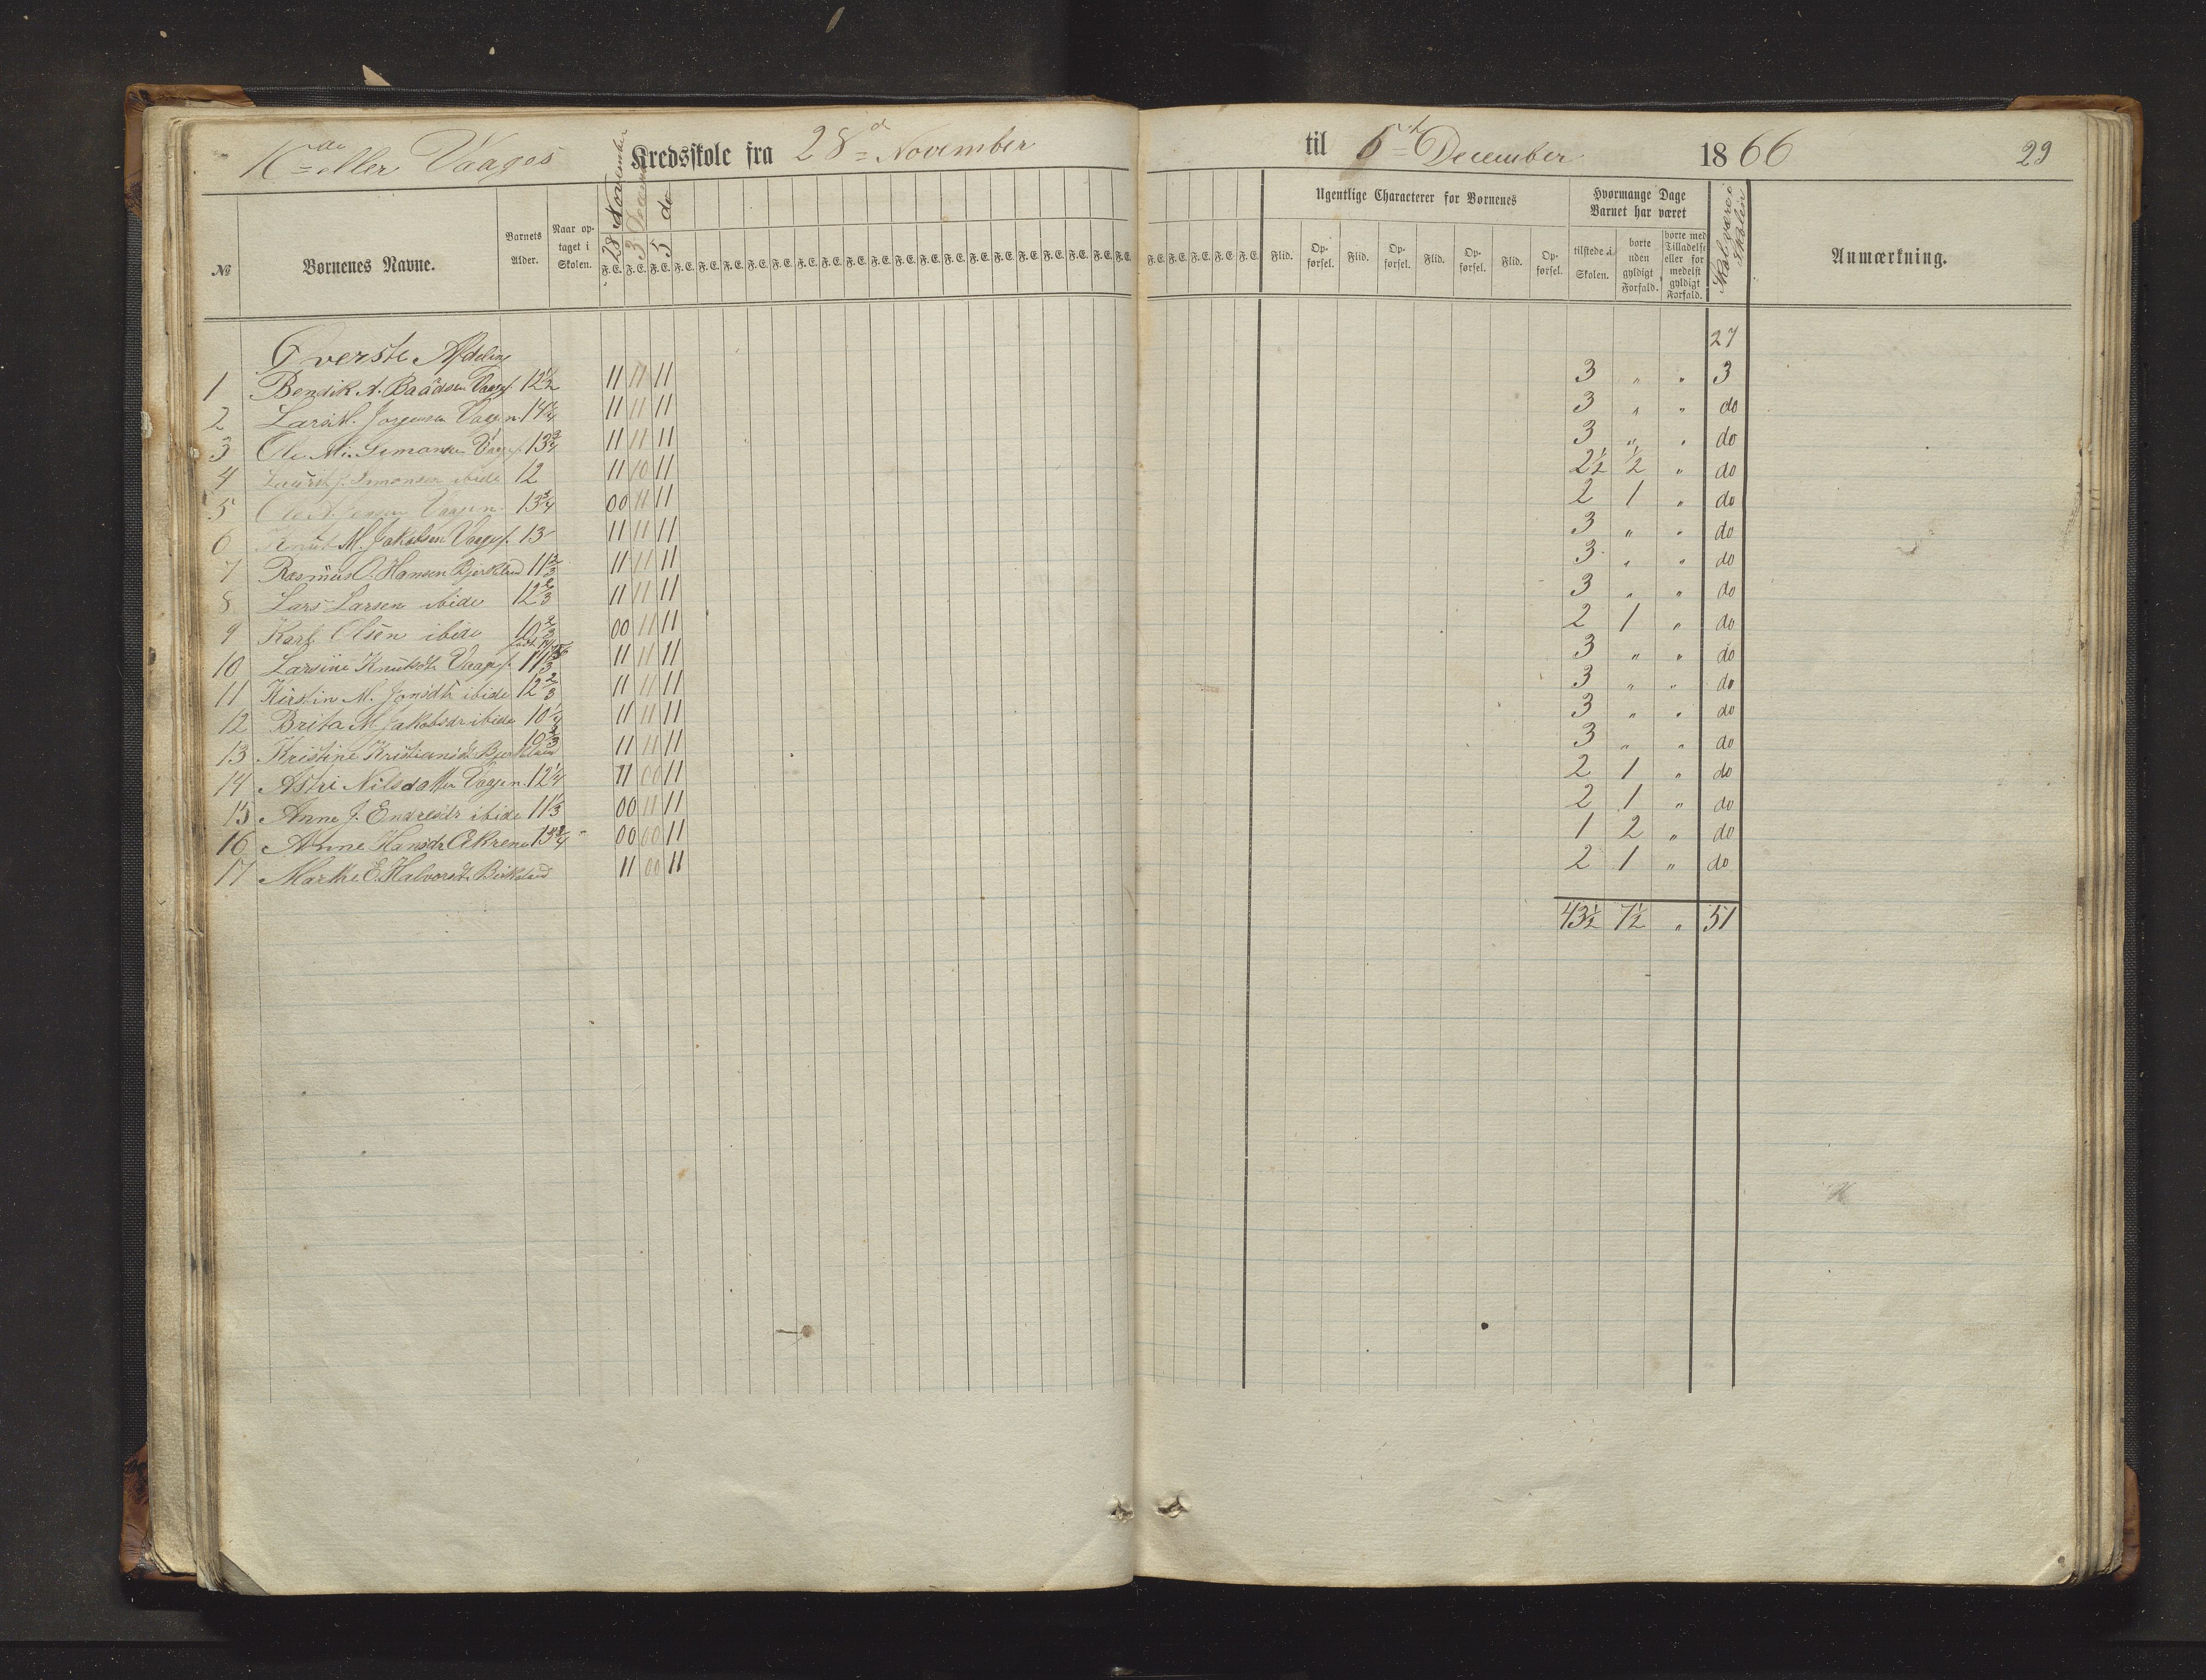 10de eller Vaages Kredsskole fra 28d November til 5th December 1866 29
№ Børnenes Navne. Barnets Alder. Naar optaget i Skolen. 28 November 3 December 5 do Ugentlige Characterer for Børnenes Hvormange Dage Barnet har været Skal være i Skolen Anmærkning.
F. E. F. E. F. E. F. E. F. E. F. E. F. E. F. E. F. E. F. E. F. E. F. E. F. E. F. E. F. E. F. E. F. E. F. E. F. E. F. E. F. E. F. E. F. E. F. E. F. E. F. E. F. E.
Flid. Opførsel. Flid. Opførsel. Flid. Opførsel. Flid. Opførsel. tilstede i Skolen. borte uden gyldigt Forfald. borte med Tilladelse eller formedelst gyldigt Forfald.
Øverste Afdeling 27
1 Bendik A. Baadsen Vaage 12½ 11 11 11 3 " " 3
2 Lars M. Jørgensen Vaagen 14¼ 11 11 11 3 " " do
3 Ole M. Simonsen Vaage 13¾ 11 11 11 3 " " do
4 Laurits J. Simonsen ibide 12 11 10 11 2½ ½ " do
5 Ole A. Jensen Vaagen 13¾ 00 11 11 2 1 " do
6 Knut M. Jakobsen Vaage 13 11 11 11 3 " " do
7 Rasmus O. Hansen Bjerkelund 11⅔ 11 11 11 3 " " do
8 Lars Larsen ibide 12⅔ 11 11 11 3 " " do
9 Karl Olsen ibide 10⅔ 00 11 11 2 1 " do
10 Larsine Knutsdtr Vaage 11⅓ 11 11 11 3 " " do
11 Kirstin M. Jonsdtr ibide 12⅔ 11 11 11 3 " " do
12 Brita M. Jakobsdr ibide 10¼ 11 11 11 3 " " do
13 Kristine Kristiansdtr 10⅔ 11 11 11 3 " " do
14 Astri Nilsdatter Vaagen 12¼ 11 00 11 2 1 " do
15 Anne J. Endresdr ibide 11⅓ 00 11 11 2 1 " do
16 Anne Hansdr Ækrene 13¾ " 00 00 11 1 2 " do
17 Marthe E. Halvorsdtr Birkeland 11 00 11 2 1 " do
43½ 7½ " 51